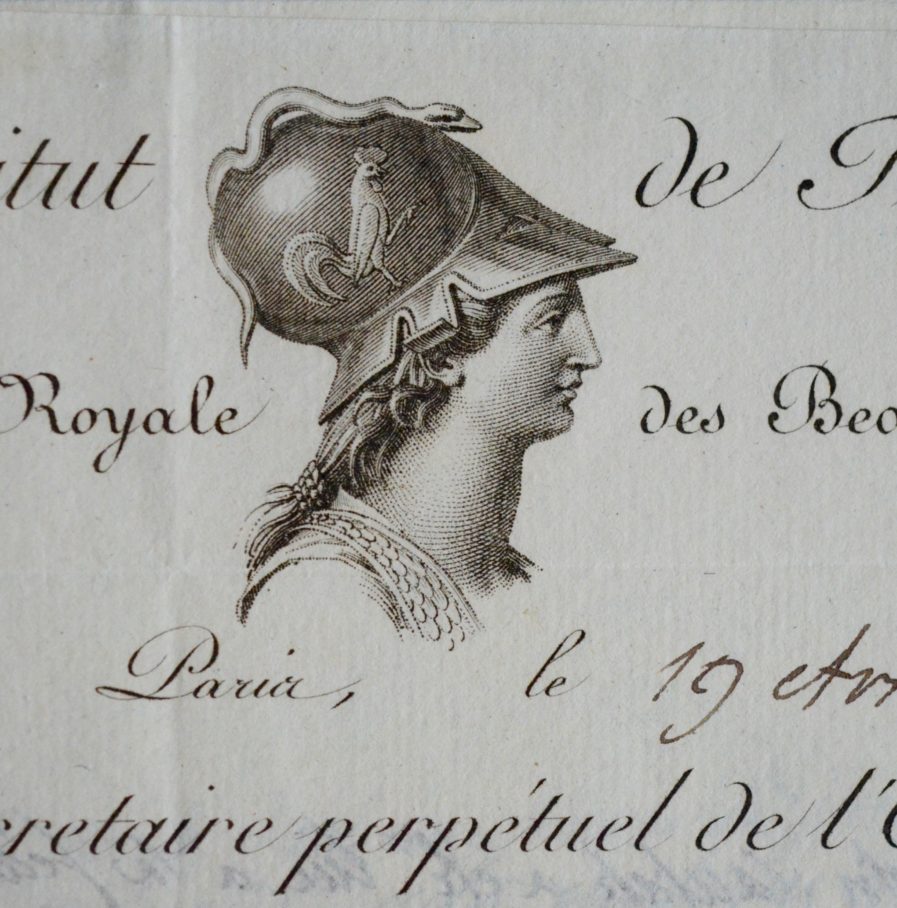 itut de
Royale des Bea
Paris, le 19 Avr
cretaire perpétuel de l'